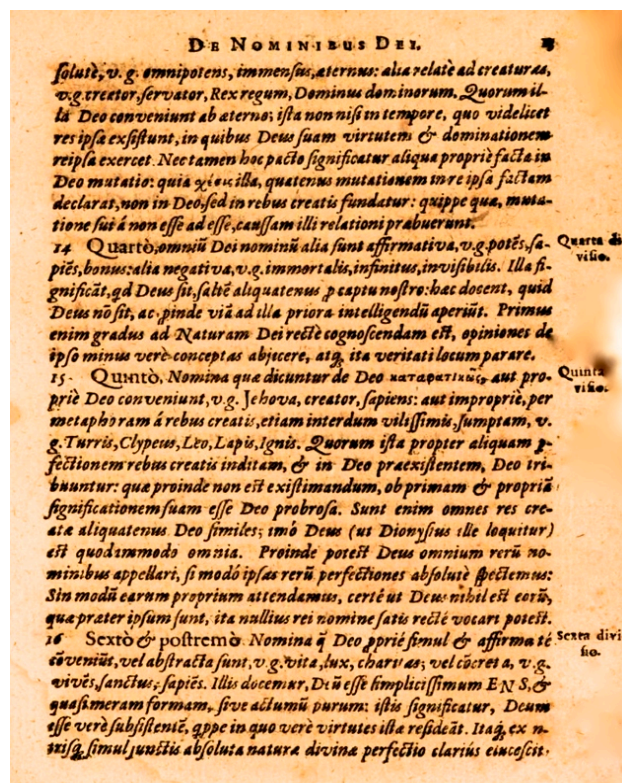 DE NOMINIBUS DEI.
solutè, v. g. omnipotens, immensus, æternus: alia relatè ad creaturas,
v.g. creator, servator, Rex regum, Dominus dominorum. Quorum il-
la Deo conveniunt ab æterno; ista non nisi in tempore, quo videlicet
res ipsæ exsistunt, in quibus Deus suam virtutem & dominationem
reipsa exercet. Nec tamen hoc pacto significatur aliqua propriè facta in
Deo mutatio: quia illa, quatenus mutationem in re ipsa factam
declarat, non in Deo, sed in rebus creatis fundatur: quippe quæ, muta-
tione sui á non esse ad esse, caussam illi relationi præbuerunt.
14 Quartò, omniū Dei nominū alia sunt affirmativa, v.g. potēs, sa-
piēs, bonus: alia negativa, v.g. immortalis, infinitus, invisibilis. Illa si-
gnificāt, qd Deus sit, saltē aliquatenus p captu nostro: hæc docent, quid
Deus nō sit, ac pinde viā ad illa priora intelligendū aperiūt. Primus
enim gradus ad Naturam Dei rectè cognoscendam est, opiniones de
ipso minus verè conceptas abjicere, atq; ita veritati locum parare.
Quarta di
visio.
15. Quintò, Nomina quæ dicuntur de Deo καταφατικῶς, aut pro-
priè Deo conveniunt, v.g. Jehova, creator, sapiens: aut impropriè, per
metaphoram á rebus creatis, etiam interdum vilissimis, sumptam, v.
g. Turris, Clypeus, Leo, Lapis, Ignis. Quorum ista propter aliquam p-
fectionem rebus creatis inditam, & in Deo præexistentem, Deo tri-
buuntur: quæ proinde non est existimandum, ob primam & propriā
significationem suam esse Deo probrosa. Sunt enim omnes res cre-
atæ aliquatenus Deo similes; imó Deus (ut Dionysius ille loquitur)
est quodammodo omnia. Proinde potest Deus omnium rerū no-
minibus appellari, si modò ipsas rerū perfectiones absolutè spectemus:
Sin modū earum proprium attendamus, certè ut Deus nihil est eorū,
quæ præter ipsum sunt, ita nullius rei nomine satis rectè vocari potest.
Quinta
visio.
16 Sextò & postremò Nomina q̄ Deo ppriè simul & affirmatè
cōveniūt, vel abstracta sunt, v.g. vita, lux, charitas; vel cōcreta, v.g.
vivēs, sanctus, sapiēs. Illis docemur, Deū esse simplicissimum ENS, &
quasi meram formam, sive actum purum: istis significatur, Deum
esse verè subsistentē, qppe in quo verè virtutes illæ resideāt. Itaq; ex u-
trisq; simul junctis absoluta naturæ divinæ perfectio clarius elucescit.
Sexta divi
sio.